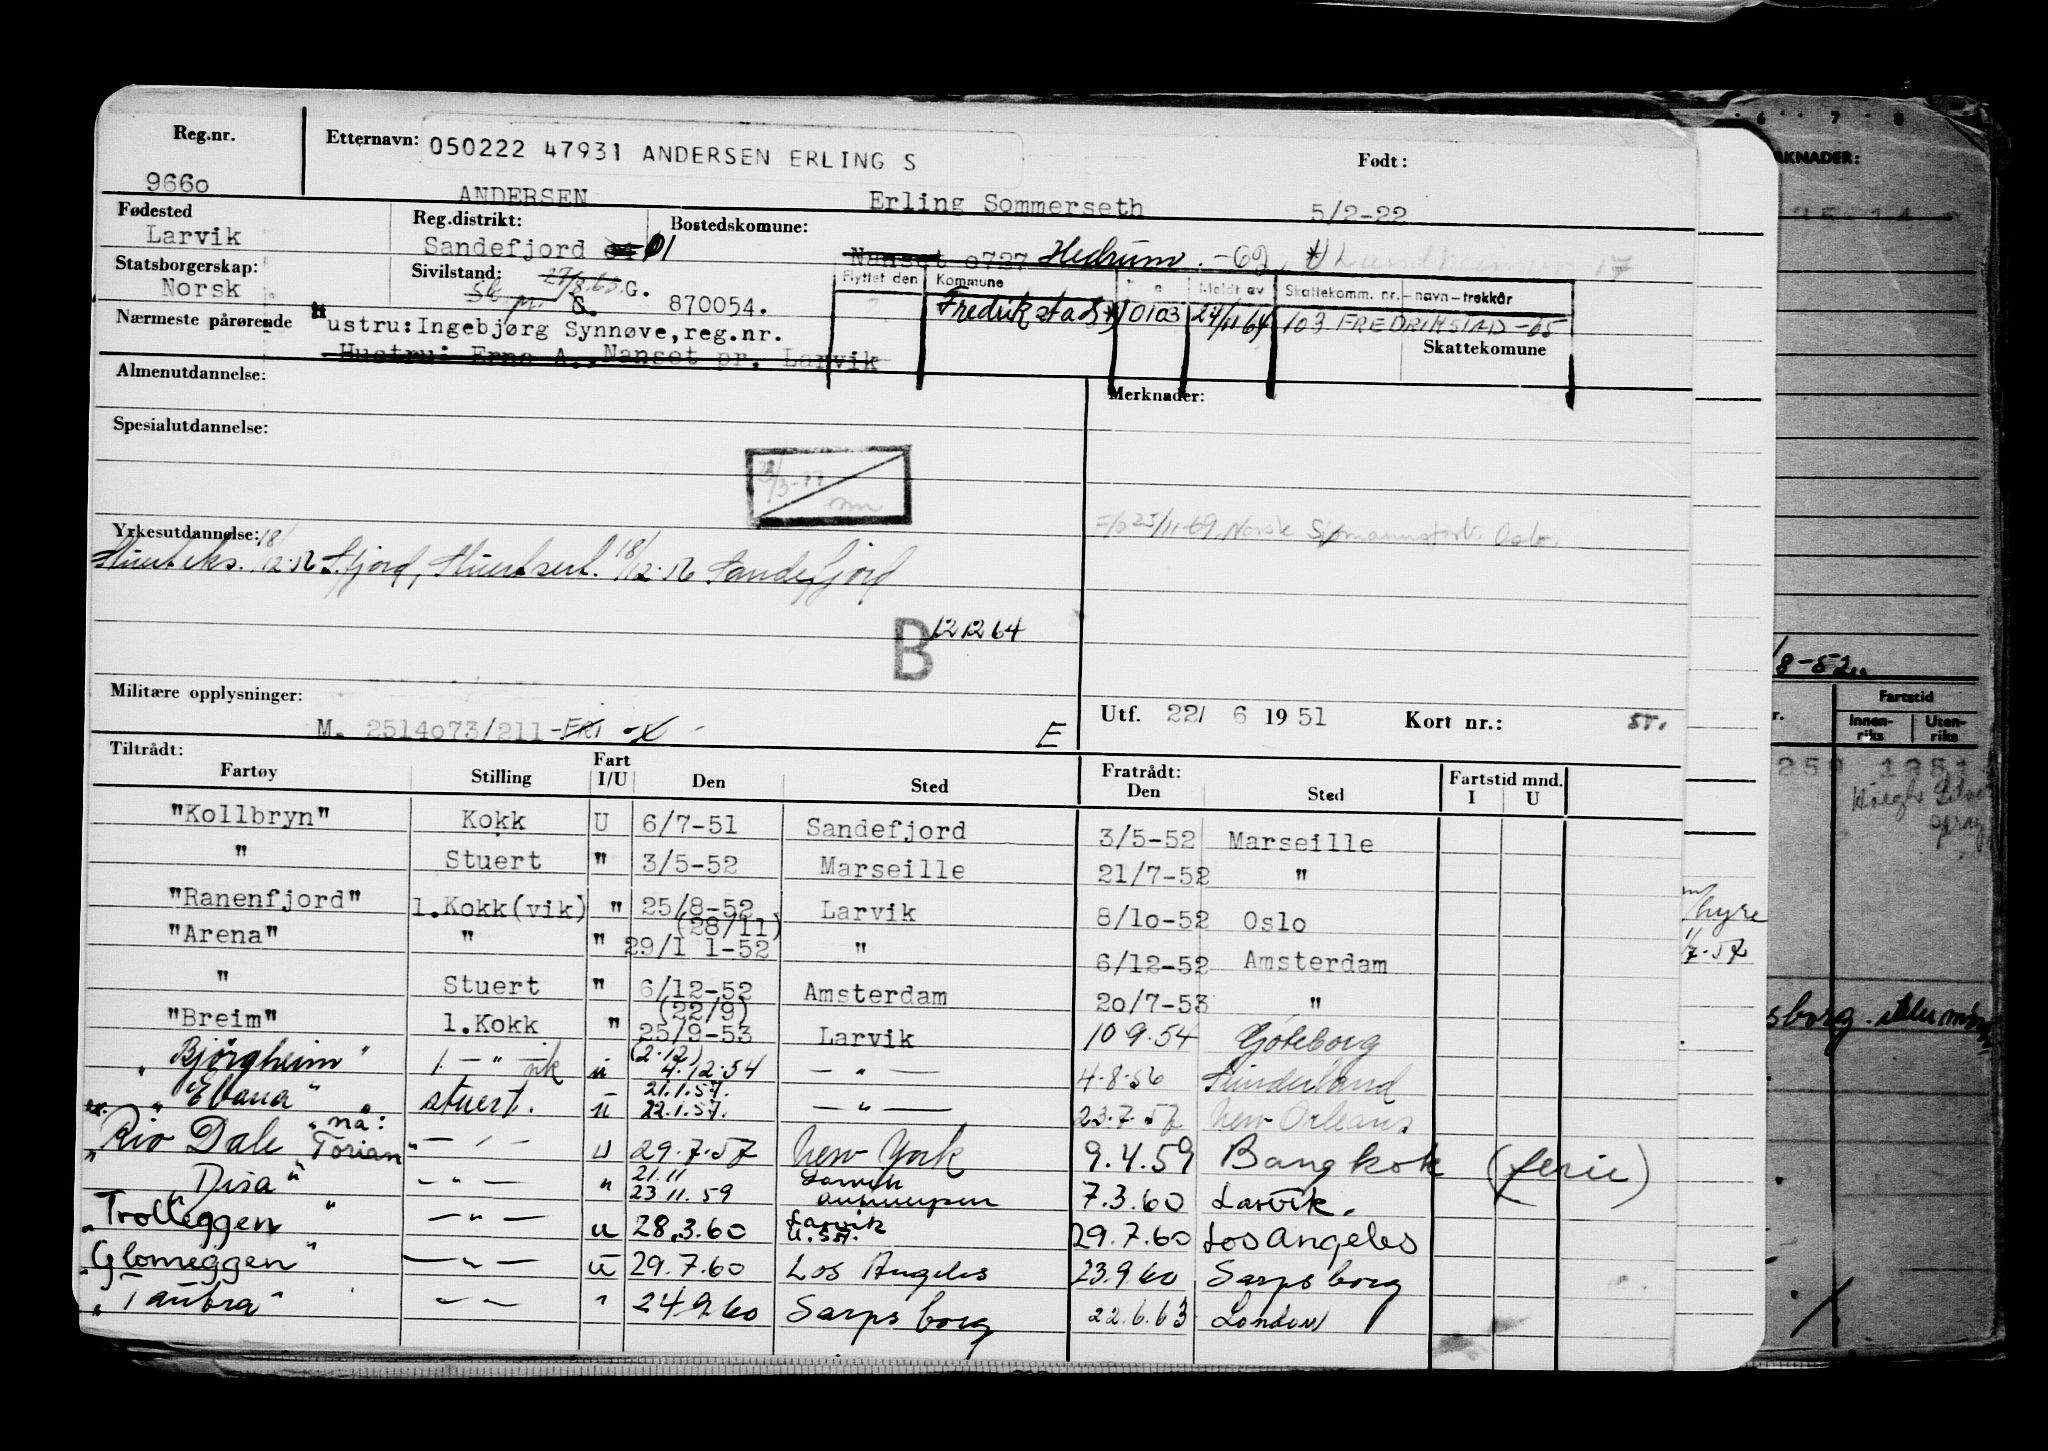 Reg.nr. Etternavn: 050222 47931 ANDERSEN ERLING S Født:
9660 ANDERSEN Erling Sommerseth 5/2-22
Fødested Reg.distrikt: Bostedskomune:
Larvik Sandefjord 01 Nanset 0727 Hedrum. -69
Statsborgerskap: Sivilstand: 27/8.63. G.
Norsk S. 870054.
Flyttet den Kommune Meldt av Skattekomm. nr.-navn-trekkår
Fredrikstad 0103 24/11 64 103 FREDRIKSTAD-05
Nærmeste pårørende Hustru: Ingebjørg Synnøve, reg.nr. Skattekomune
Hustru: Erna A., Nanset pr. Larvik
Almenutdannelse: Merknader:
Spesialutdannelse:
F/o 25/11-69 Norsk Sjømannsforb. Oslo.
Yrkesutdannelse:
Stuert eks. 18/12-56 S.fjord, Stuertsert. 18/12-56 Sandefjord
B 12 12 64
Militære opplysninger: Utf. 22/ 6 1951 Kort nr.: 5T.
M. 2514073/211- E
Tiltrådt: Fratrådt: Fartstid mnd.
Fartøy Stilling Fart I/U Den Sted Den Sted I U
"Kollbryn" Kokk U 6/7-51 Sandefjord 3/5-52 Marseille
" Stuert " 3/5-52 Marseille 21/7-52 "
"Ranenfjord" 1.Kokk(vik) " 25/8-52 Larvik 8/10-52 Oslo
"Arena" " " (28/11) 29/1 1-52 " 6/12-52 Amsterdam
" Stuert " 6/12-52 Amsterdam 20/7-53 "
"Breim" 1.Kokk " (22/9) 25/9-53 Larvik 10 9.54 Göteborg
"Bjørgheim" 1. — " — vik u (2.12) 4.12.54 — " — 4-8-56 Sunderland
"Ebana" stuert. u 21.1.57. 22.1.57. — " — 23.7.57 New Orleans
ex. "Rio Dale" nå: "Torian" — " — U 29.7.57 New York 9.4.59 Bangkok (ferie)
"Disa" — " — " 21.11 23 11.59 Larvik Antwerpen 7.3.60 Larvik.
"Trolleggen" — " — u 28.3.60 Larvik U.S.A. 29.7.60 Los Angeles
"Glomeggen" — " — u 29.7.60 Los Angeles 23.9.60 Sarpsborg
"Taubra" — " — " 24 9.60 Sarpsborg 22.6.63 London
6 7 8
MERKNADER:
/8-52.
Fartstid
Innenriks Utenriks
/hyre
1/7-57